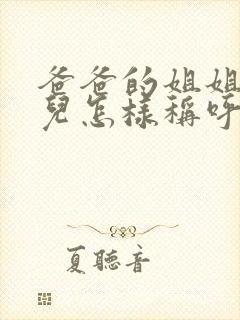 爸爸的姐姐
兒怎樣稱呼
夏聽音